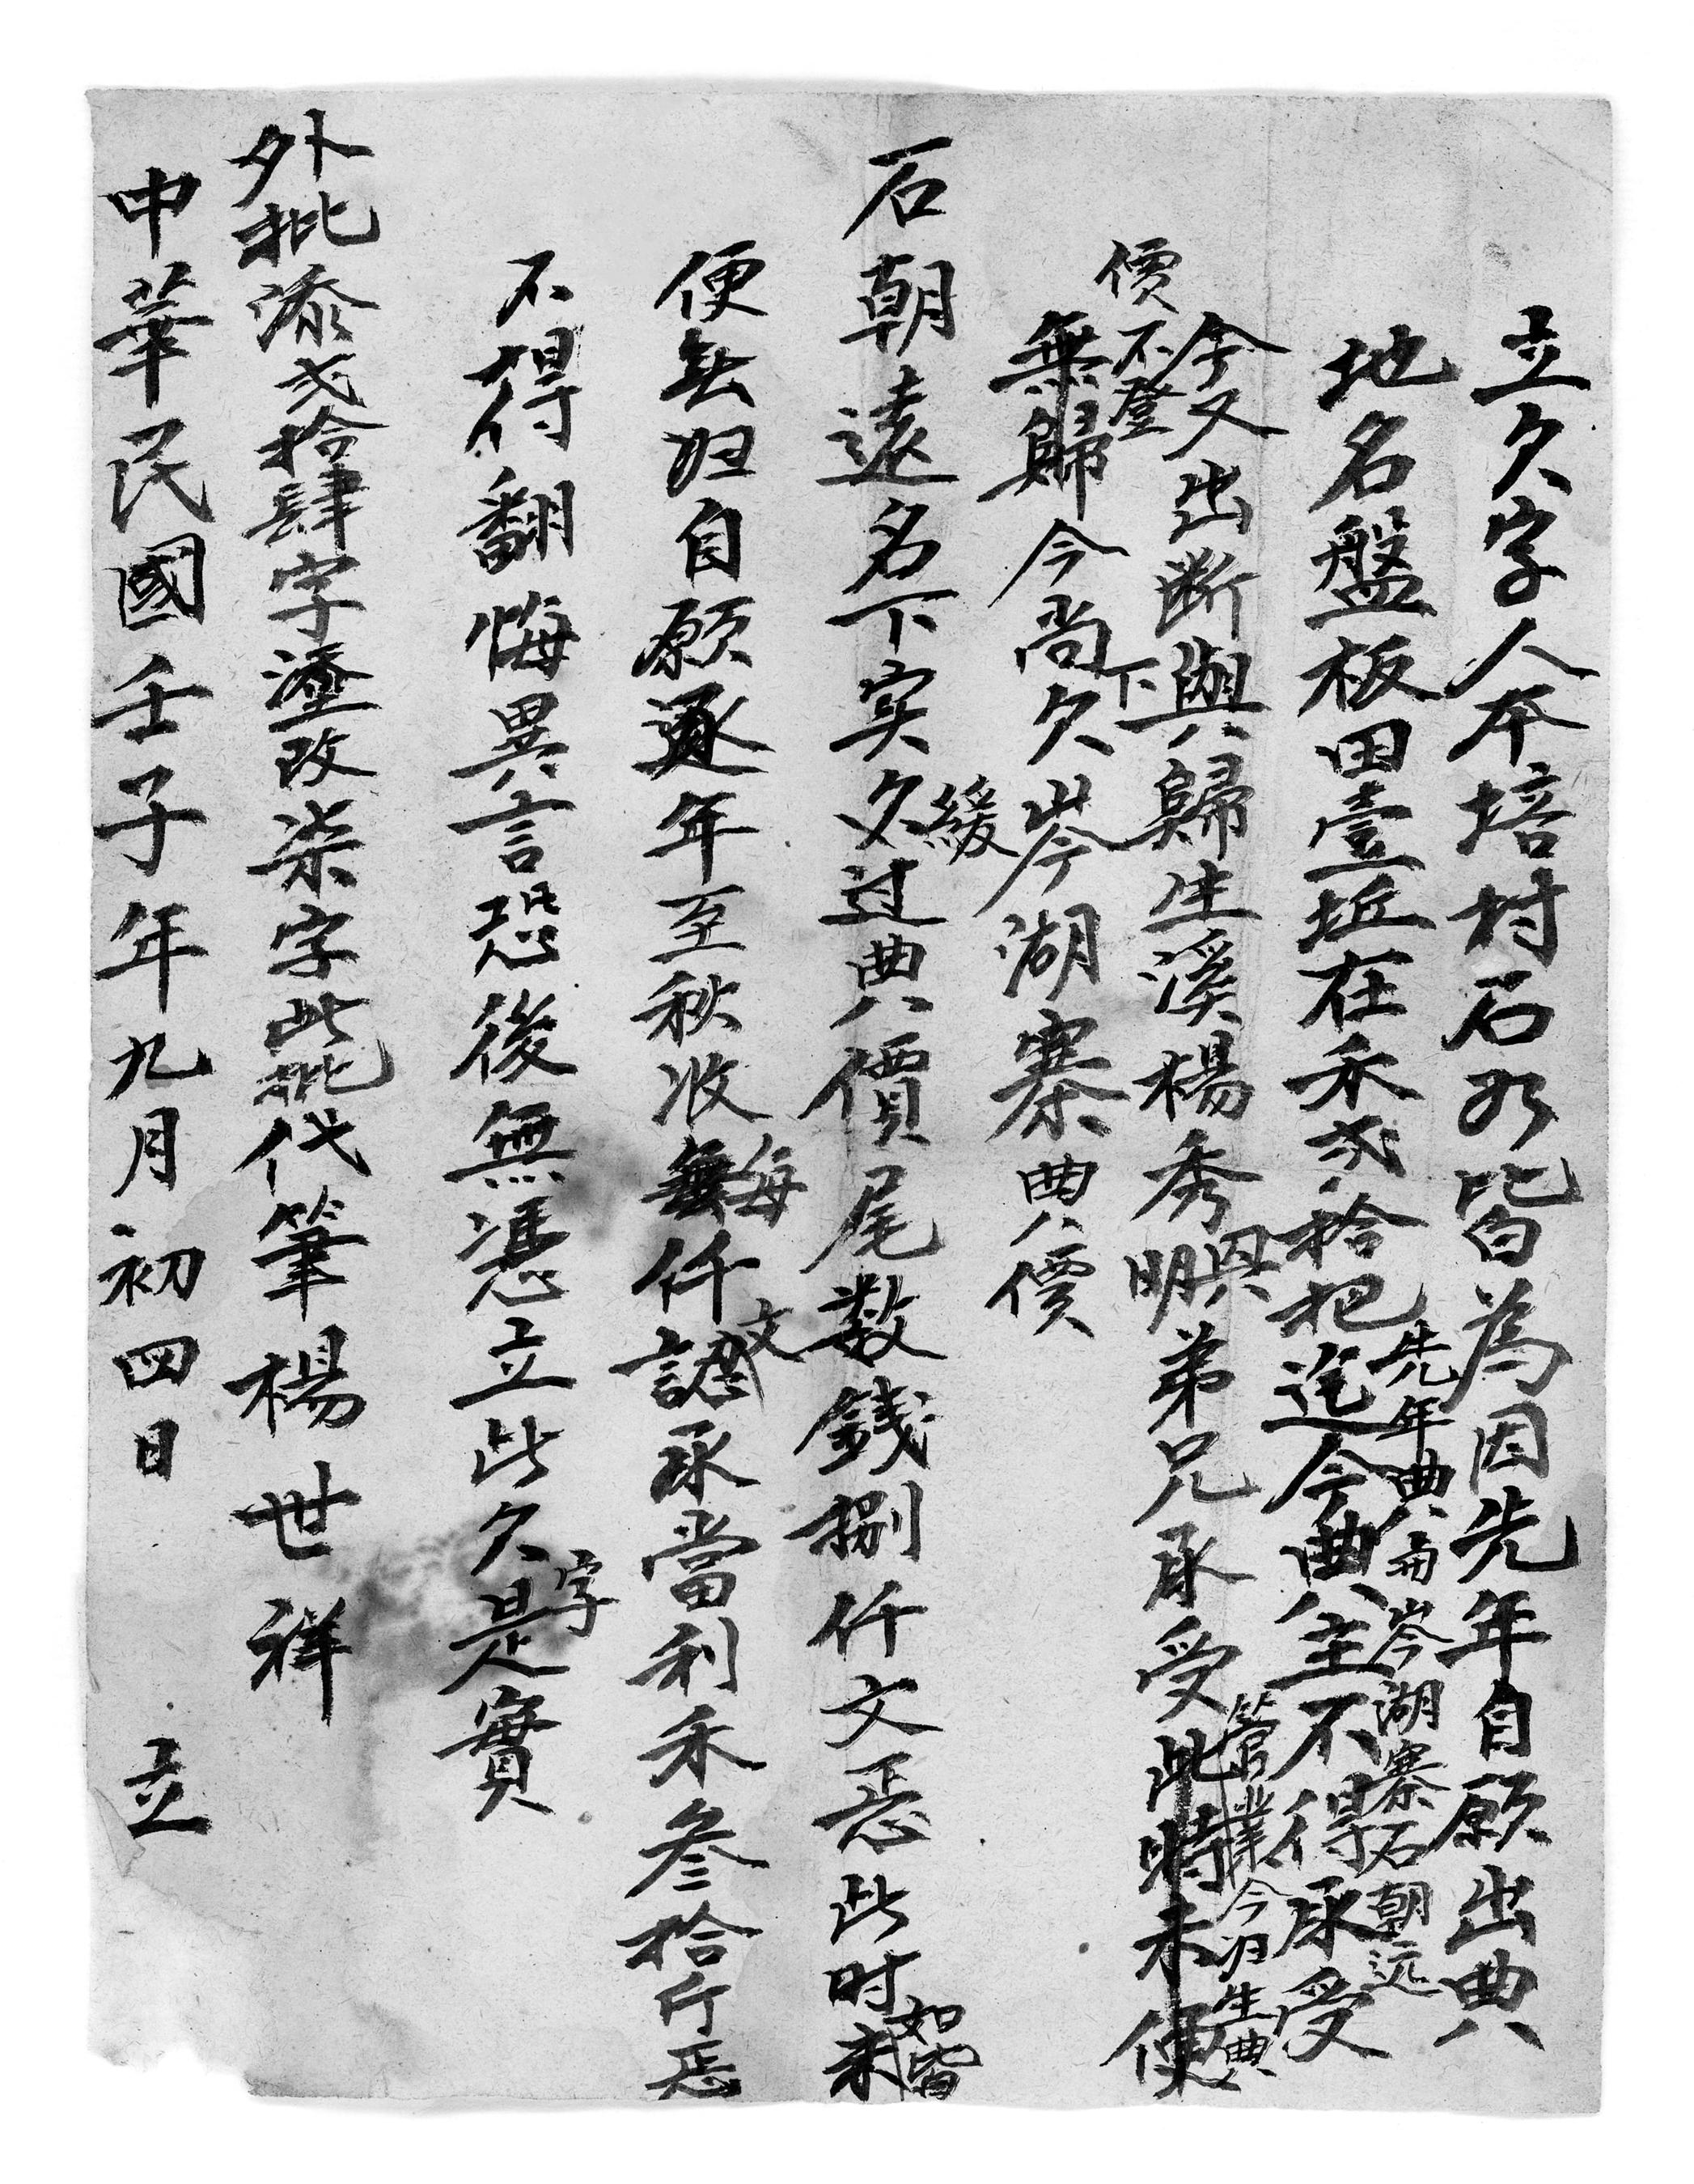 立欠字人本培村石乃皆為因先年自願出典
先年典而岑湖寨石朝远
地名盤板田壹坵在禾弍拾把迄今典主不得承受
管業今归生典
今又出断與歸生溪楊秀恩明弟兄承受此時未便
價不登下
無歸今尚欠岑湖寨典價
緩
石朝遠名下实欠过典價尾数錢捌仟文恶此时未
如皆
便無归自願逐年至秋收每仟文認承當利禾叁拾斤恶
不得翻悔異言恐後無憑立此欠字是實
外批添弍拾肆字塗改柒字此批代筆楊世祥
中華民國壬子年九月初四日 立